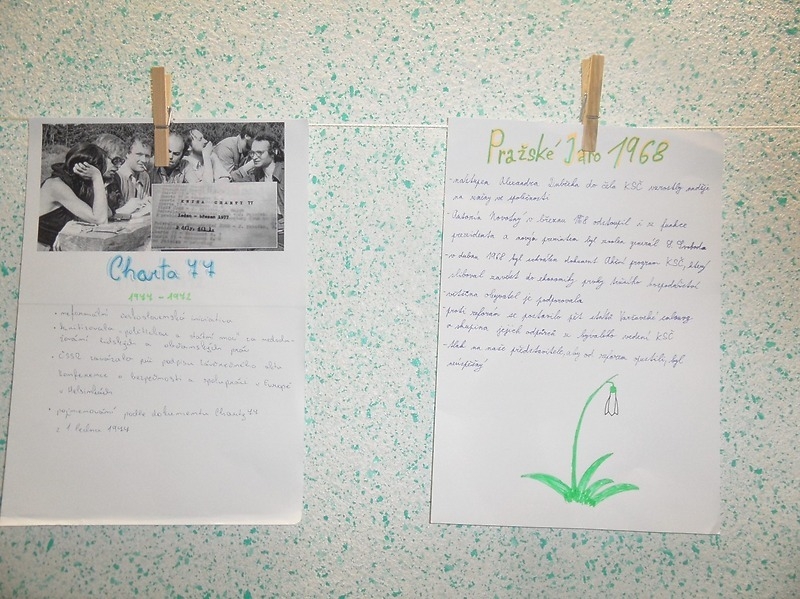 KNIHA CHARTY 77
leden - březen 1977
Charta 77
1977 - 1992
• neformální československá iniciativa
• kritizovala politickou a státní moc za nedodr-
žování lidských a občanských práv
• ČSSR zavázala při podpisu závěrečného aktu
konference o bezpečnosti a spolupráci v Evropě
v Helsinkách
• pojmenování podle dokumentu Charty 77
z 1. ledna 1977
Pražské Jaro 1968
- nástupem Alexandra Dubčeka do čela KSČ vzrostly naděje
na změny ve společnosti
- Antonín Novotný v březnu 1968 odstoupil i z funkce
prezidenta a novým prezidentem byl zvolen generál L. Svoboda
- v dubnu 1968 byl schválen dokument Akční program KSČ, který
sliboval zavést do ekonomiky prvky tržního hospodářství
- většina obyvatel je podporovala
- proti reformám se postavilo pět států Varšavské smlouvy
a skupina jejich odpůrců z bývalého vedení KSČ
- tlak na naše představitele, aby od reforem upustili, byl
neúspěšný